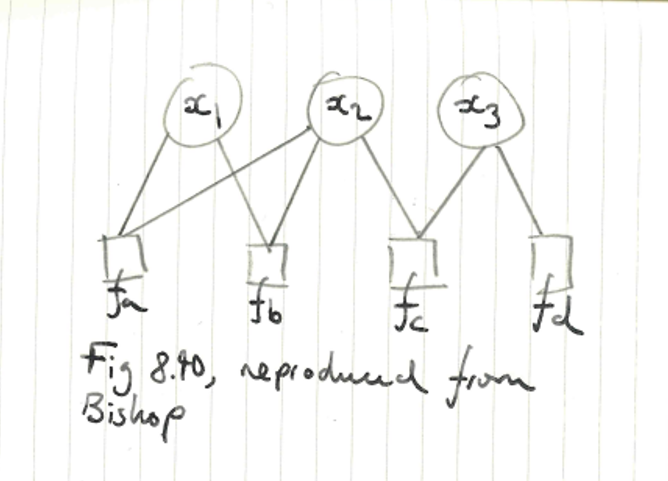 x1 x2 x3
fa fb fc fd
Fig 8.40, reproduced from
Bishop